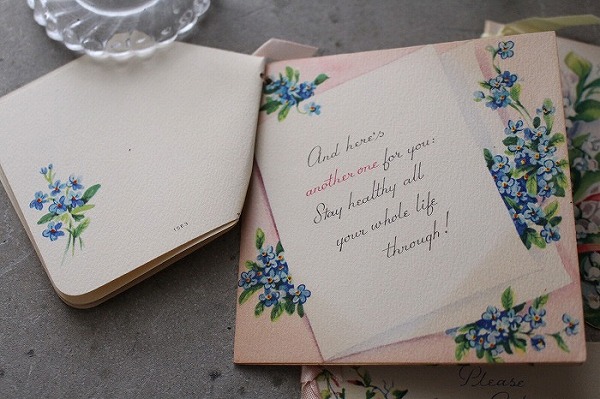 And here's
another one for you:
Stay healthy all
your whole life
through!
Please